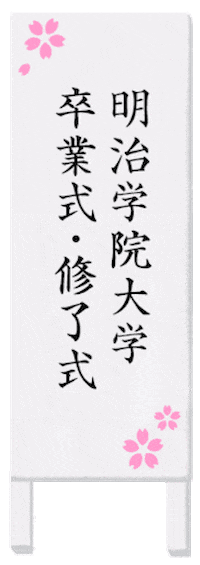 明治学院大学
卒業式・修了式